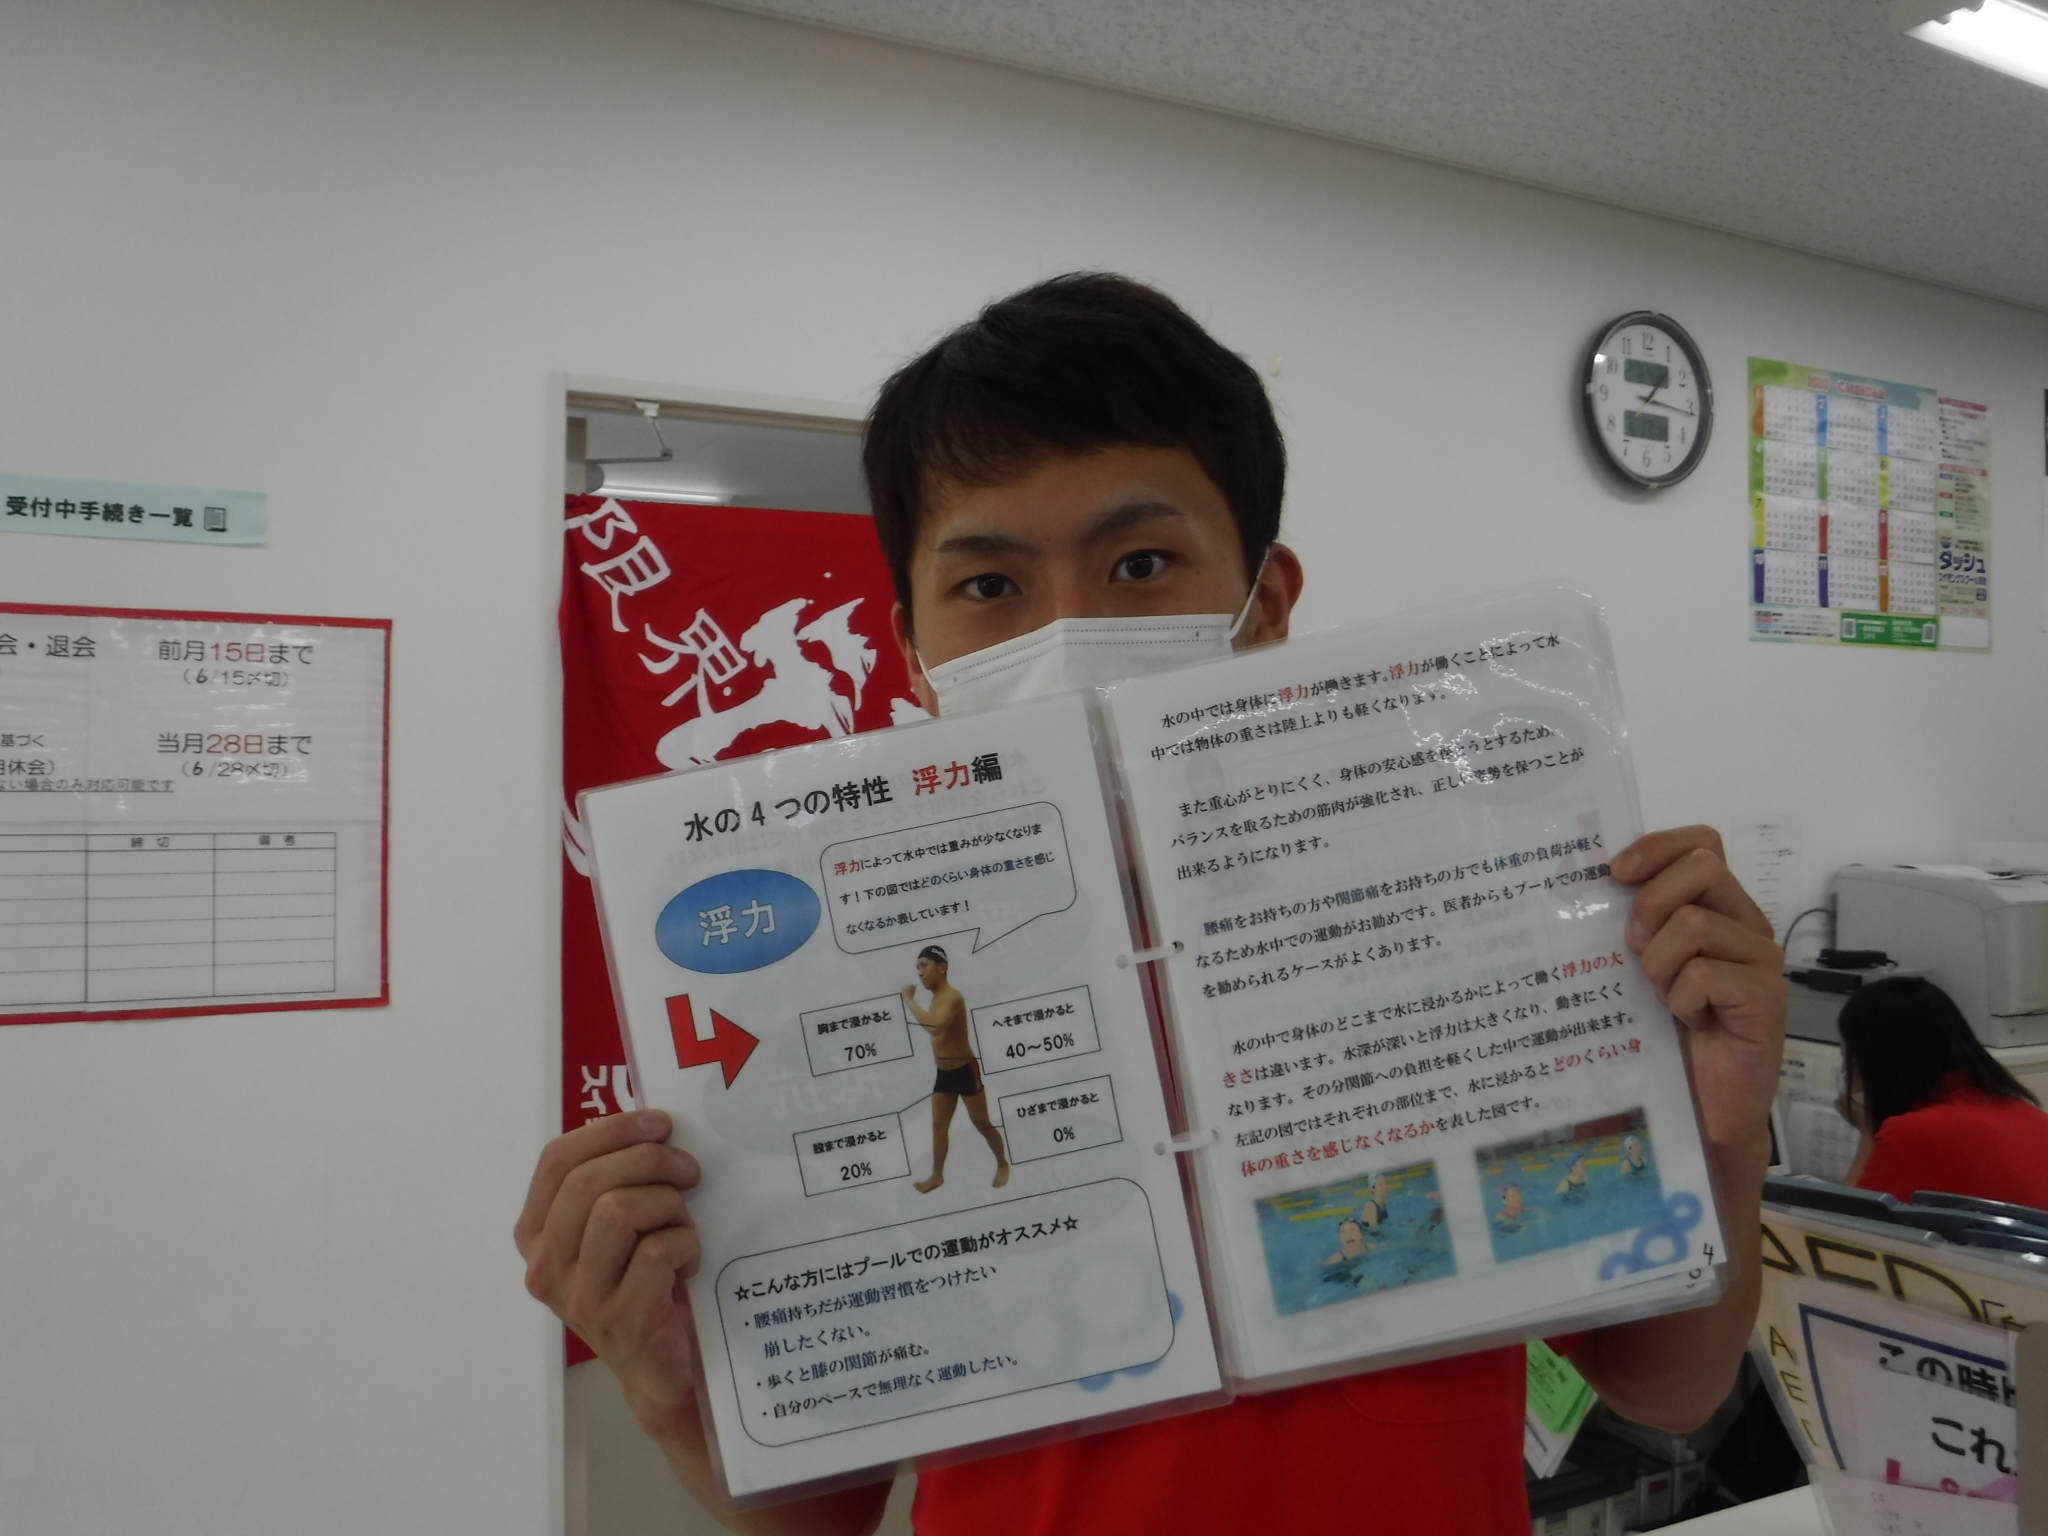 受付中手続き一覧
会・退会
前月15日まで
(6/15〆切)
基づく
当月28日まで
月休会)
(6/28〆切)
ない場合のみ対応可能です
締切
備考
限界
水の4つの特性 浮力編
浮力
浮力によって水中では重みが少なくなりま
す！下の図ではどのくらい身体の重さを感じ
なくなるか表しています！
胸まで浸かると
70%
へそまで浸かると
40～50%
股まで浸かると
20%
ひざまで浸かると
0%
☆こんな方にはプールでの運動がオススメ☆
・腰痛持ちだが運動習慣をつけたい
崩したくない。
・歩くと膝の関節が痛む。
・自分のペースで無理なく運動したい。
水の中では身体に浮力が働きます。浮力が働くことによって水
中では物体の重さは陸上よりも軽くなります。
また重心がとりにくく、身体の安心感を保とうとするため、
バランスを取るための筋肉が強化され、正しい姿勢を保つことが
出来るようになります。
腰痛をお持ちの方や関節痛をお持ちの方でも体重の負荷が軽く
なるため水中での運動がお勧めです。医者からもプールでの運動
を勧められるケースがよくあります。
水の中で身体のどこまで水に浸かるかによって働く浮力の大
きさは違います。水深が深いと浮力は大きくなり、動きにくく
なります。その分関節への負担を軽くした中で運動が出来ます。
左記の図ではそれぞれの部位まで、水に浸かるとどのくらい身
体の重さを感じなくなるかを表した図です。
4
12
1
2
3
4
5
6
7
8
9
10
11
2020 CALENDAR
ダッシュ
AED
この時
これ